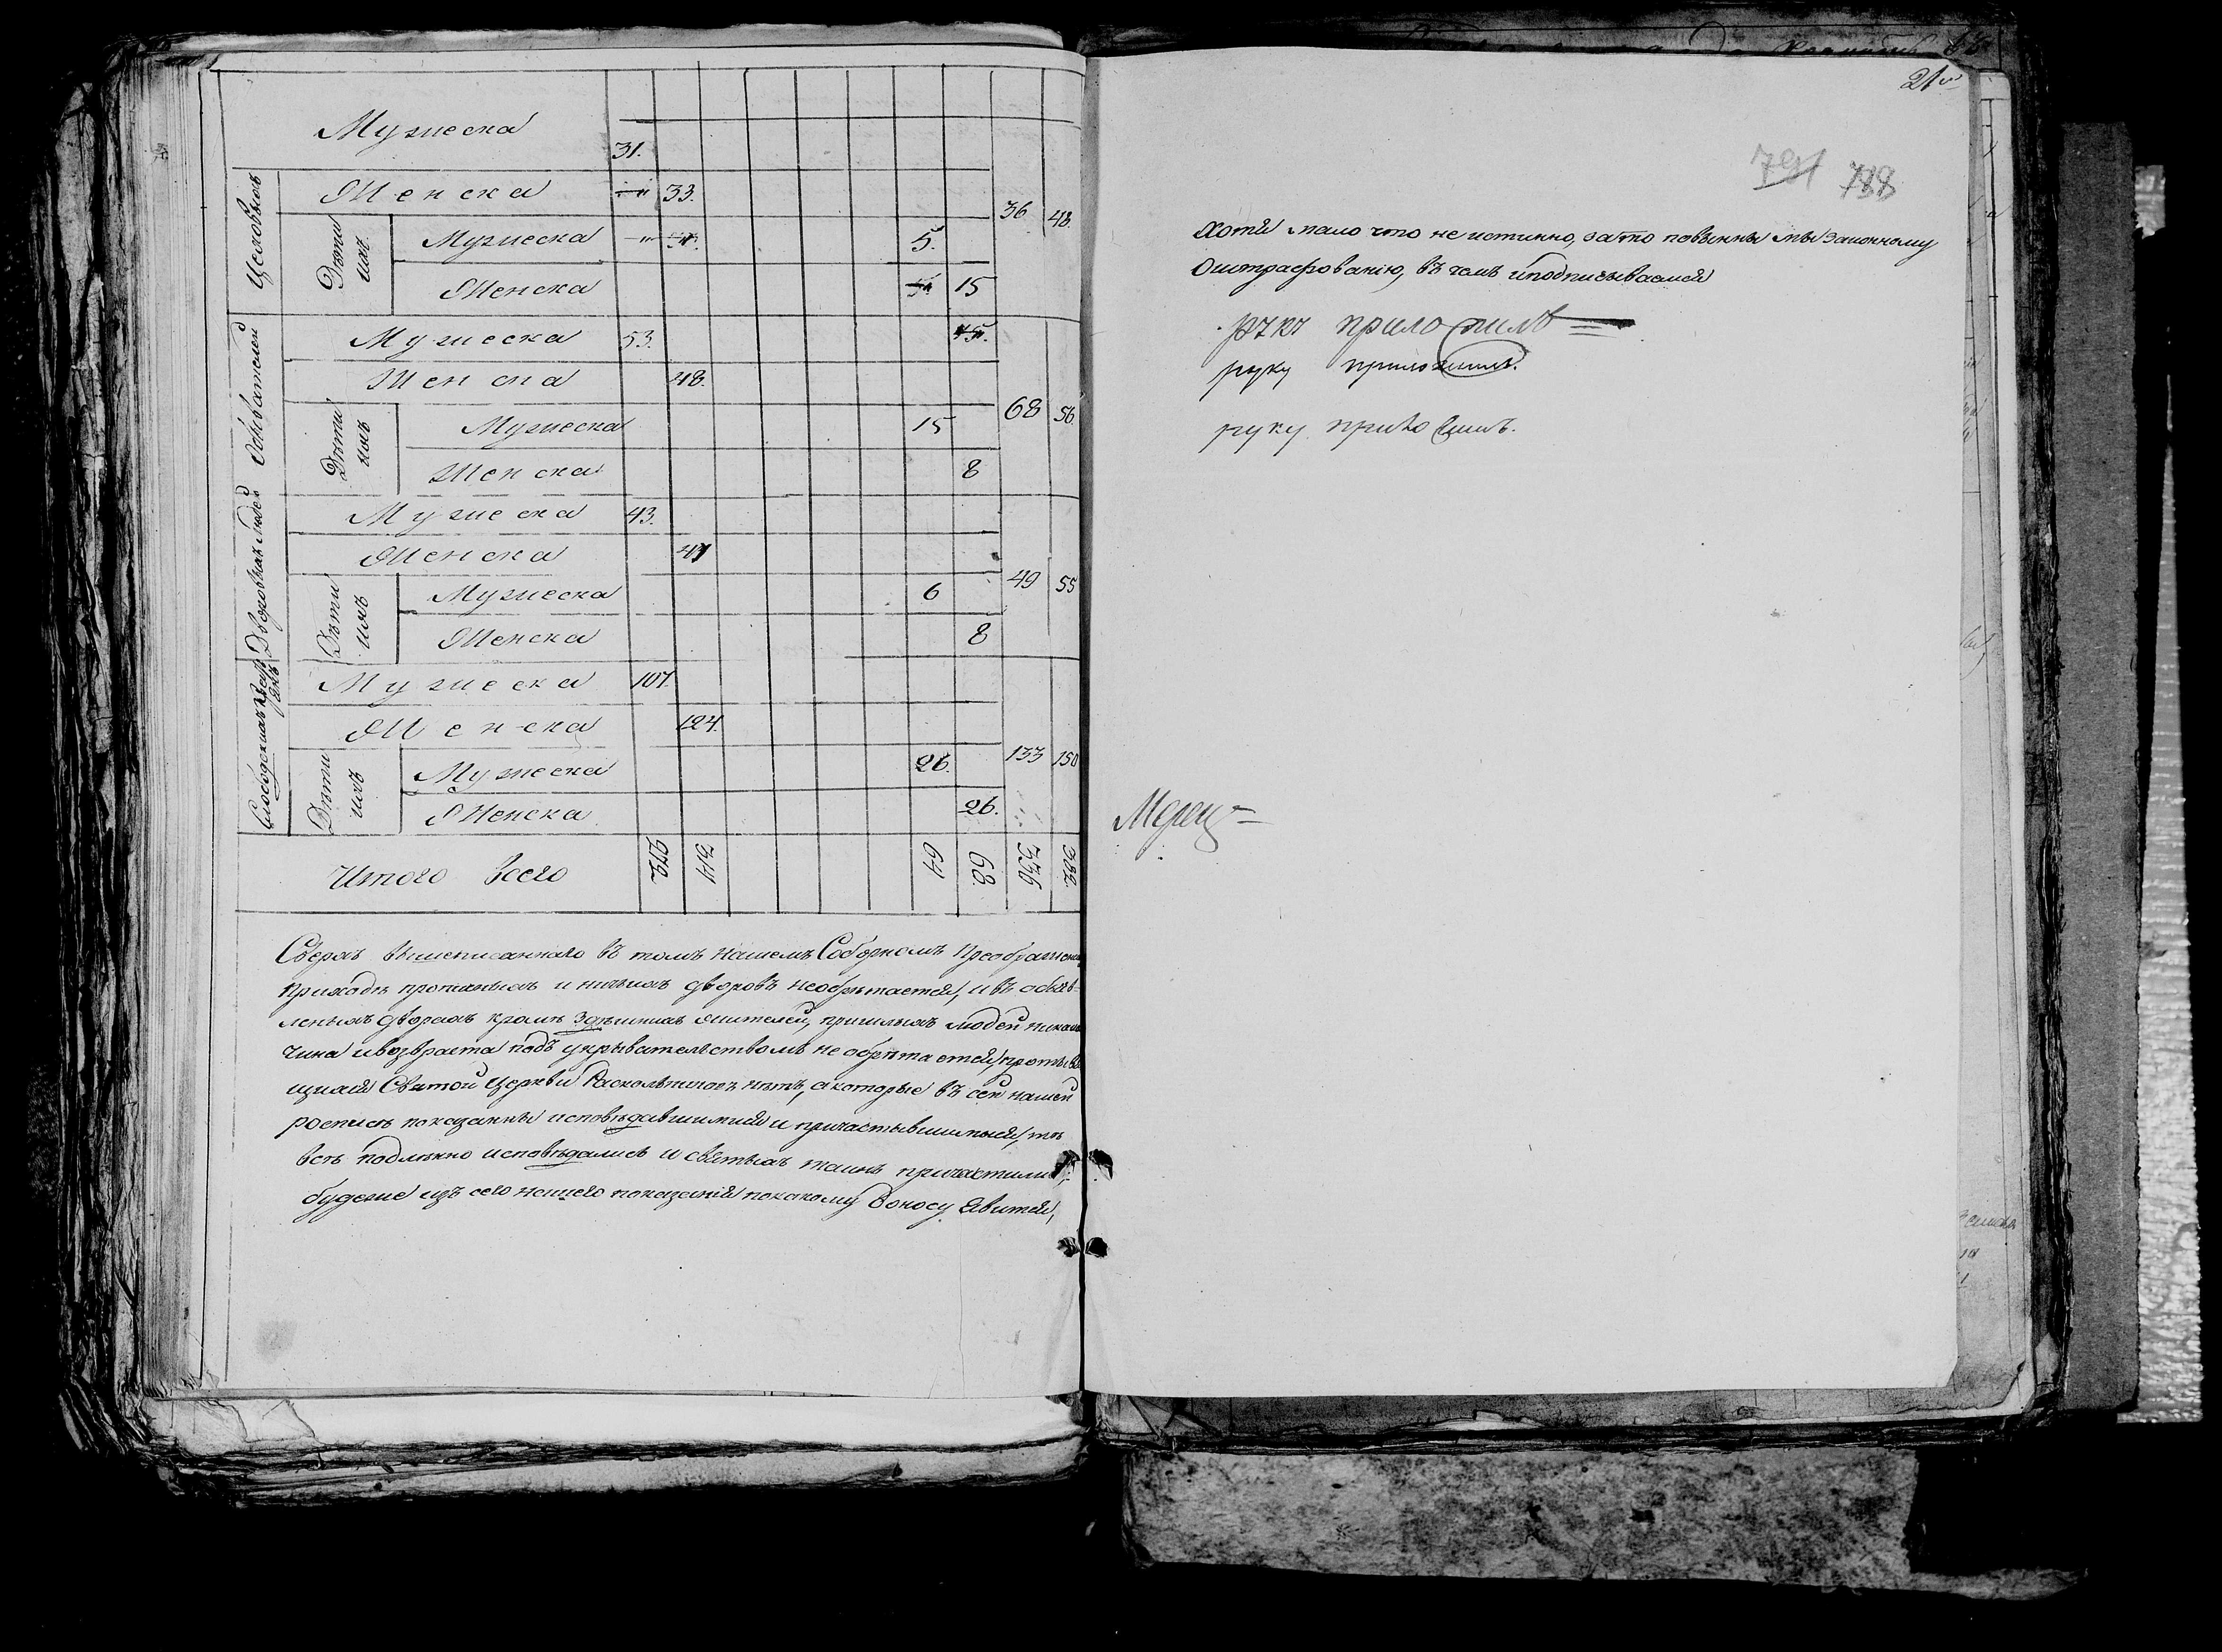 Мужеска 31. 36 48.
Цеховыхъ
Женска 33.
Дѣти ихъ
Мужеска 5.
Женска 15
Обывателей
Мужеска 53.
Женска 48.
68 56
Дѣти ихъ
Мужеска 15
Женска 8
Дворовыхъ людей
Мужеска 43.
Женска 47
49 55
Дѣти ихъ
Мужеска 6
Женска 8
Слободскихъ
Мужеска 107.
Женска 124.
133 150
Дѣти ихъ
Мужеска 26.
Женска 26.
Итого всего 272 314 64 68 336 382
Сверхъ вышеписаннаго въ томъ нашемъ Соборномъ Преображенск
приходѣ прописныхъ и ничьихъ дворовъ необрѣтается, и въ объяв-
ленныхъ дворахъ кромѣ здѣшнихъ жителей, пришлыхъ людей никако
чина и возвраста подъ укрывательствомъ не обрѣтается, противя
щихся Святой Церкви Раскольниковъ нѣтъ, а которые въ сей нашей
росписѣ показанны исповѣдавшимися и причастывшимися, тѣ
всѣ подлѣнно исповѣдались и святыхъ таинъ причастились,
будеже изъ сего нашего показанія покакому доносу явится,
21
791 788
хотя мало что не истинно, за то повѣнны мы законному
оштрафованію, въ чемъ и подписываемся
руку приложилъ
руку приложилъ.
руку приложилъ.